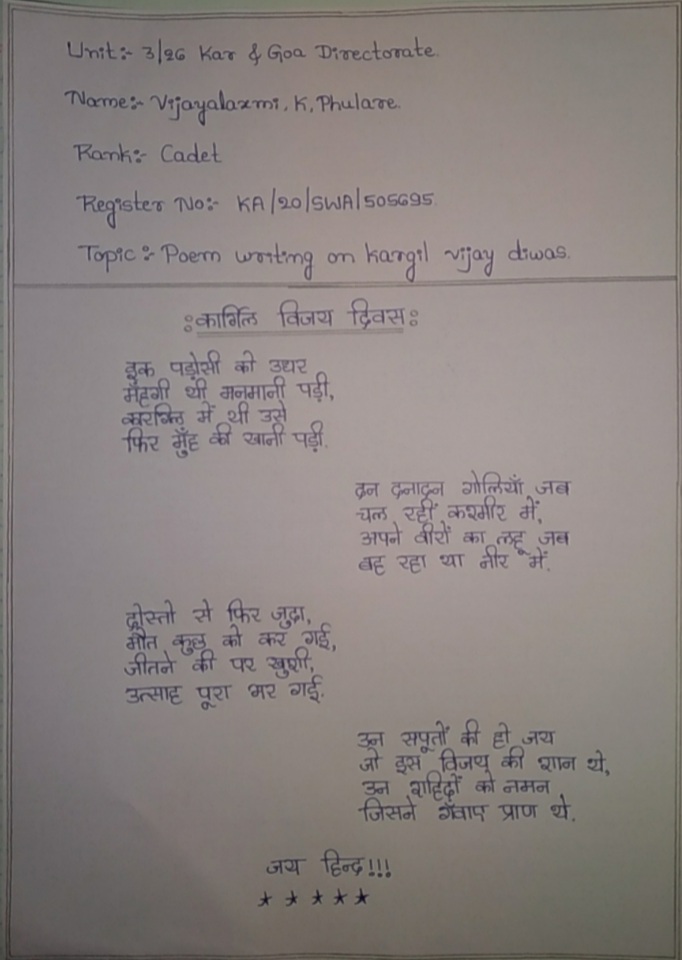 Unit:- 3/26 Kar & Goa Directorate.
Name:- Vijayalaxmi. K, Phulare.
Rank:- Cadet
Register No:- KA/20/SWA/505695
Topic:- Poem writing on kargil vijay diwas.
:कार्गिल विजय दिवस:
इक पड़ोसी को उधर
महँगी थी मनमानी पड़ी,
में थी उसे
फिर मुँह की खानी पड़ी.
दन दनादन गोलियाँ जब
चल रहीं कश्मीर में,
अपने वीरों का लहू जब
बह रहा था नीर में.
दोस्तो से फिर जुदा,
मौत कुछ को कर गई,
जीतने की पर खुशी,
उत्साह पूरा भर गई.
उन सपूतों की हो जय
जो इस विजय की शान थे,
उन शहिदों को नमन
जिसने गँवाए प्राण थे.
जय हिन्द!!!
★ ★ ★ ★ ★